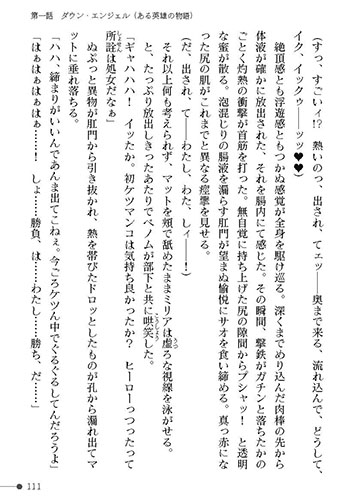 第一話　ダウン・エンジェル（ある英雄の物語）
(すっ、すごいィ!?　熱いのっ、出され、てェッ――奥まで来る、流れ込んで、どうして、
イク、イックゥーッッ♥♥)
絶頂感とも浮遊感ともつかぬ感覚が全身を駆け巡る。深くまでめり込んだ肉棒の先から
体液が確かに放出された、それを腸内にて感じた。その瞬間、撃鉄がガチンと落ちたかの
ごとく灼熱の衝撃が首筋を打った。無自覚に持ち上げた尻の隙間からプシャッ！　と透明
な蜜が散る。泡混じりの腸液を漏らす肛門が望まぬ愉悦にサオを食い締める。真っ赤にな
った尻の肌がこれまでと異なる痙攣を見せる。
(だ、出され、て――わたし、わた、しィー！)
それ以上何も考えられず、マットを頬で舐めたままミリアは虚ろな視線を泳がせる。
と、たっぷり放出しきったあたりでベノムが部下と共に哄笑した。
「ギャハハハ！　イッたか。初ケツマンコは気持ち良かったか？　ヒーローっつったって
所詮は処女だなぁ」
ぬぷっと異物が肛門から引き抜かれ、熱を帯びたドロッとしたものが孔から漏れ出てマ
ットに垂れ落ちる。
「ハハ、締まりがいいんであんま出てこねぇ。今ごろケツん中でぐるぐるしてんだろうよ」
「はぁはぁはぁはぁ……！　しょ……勝負、は……わたし……勝ち、だ……」
111